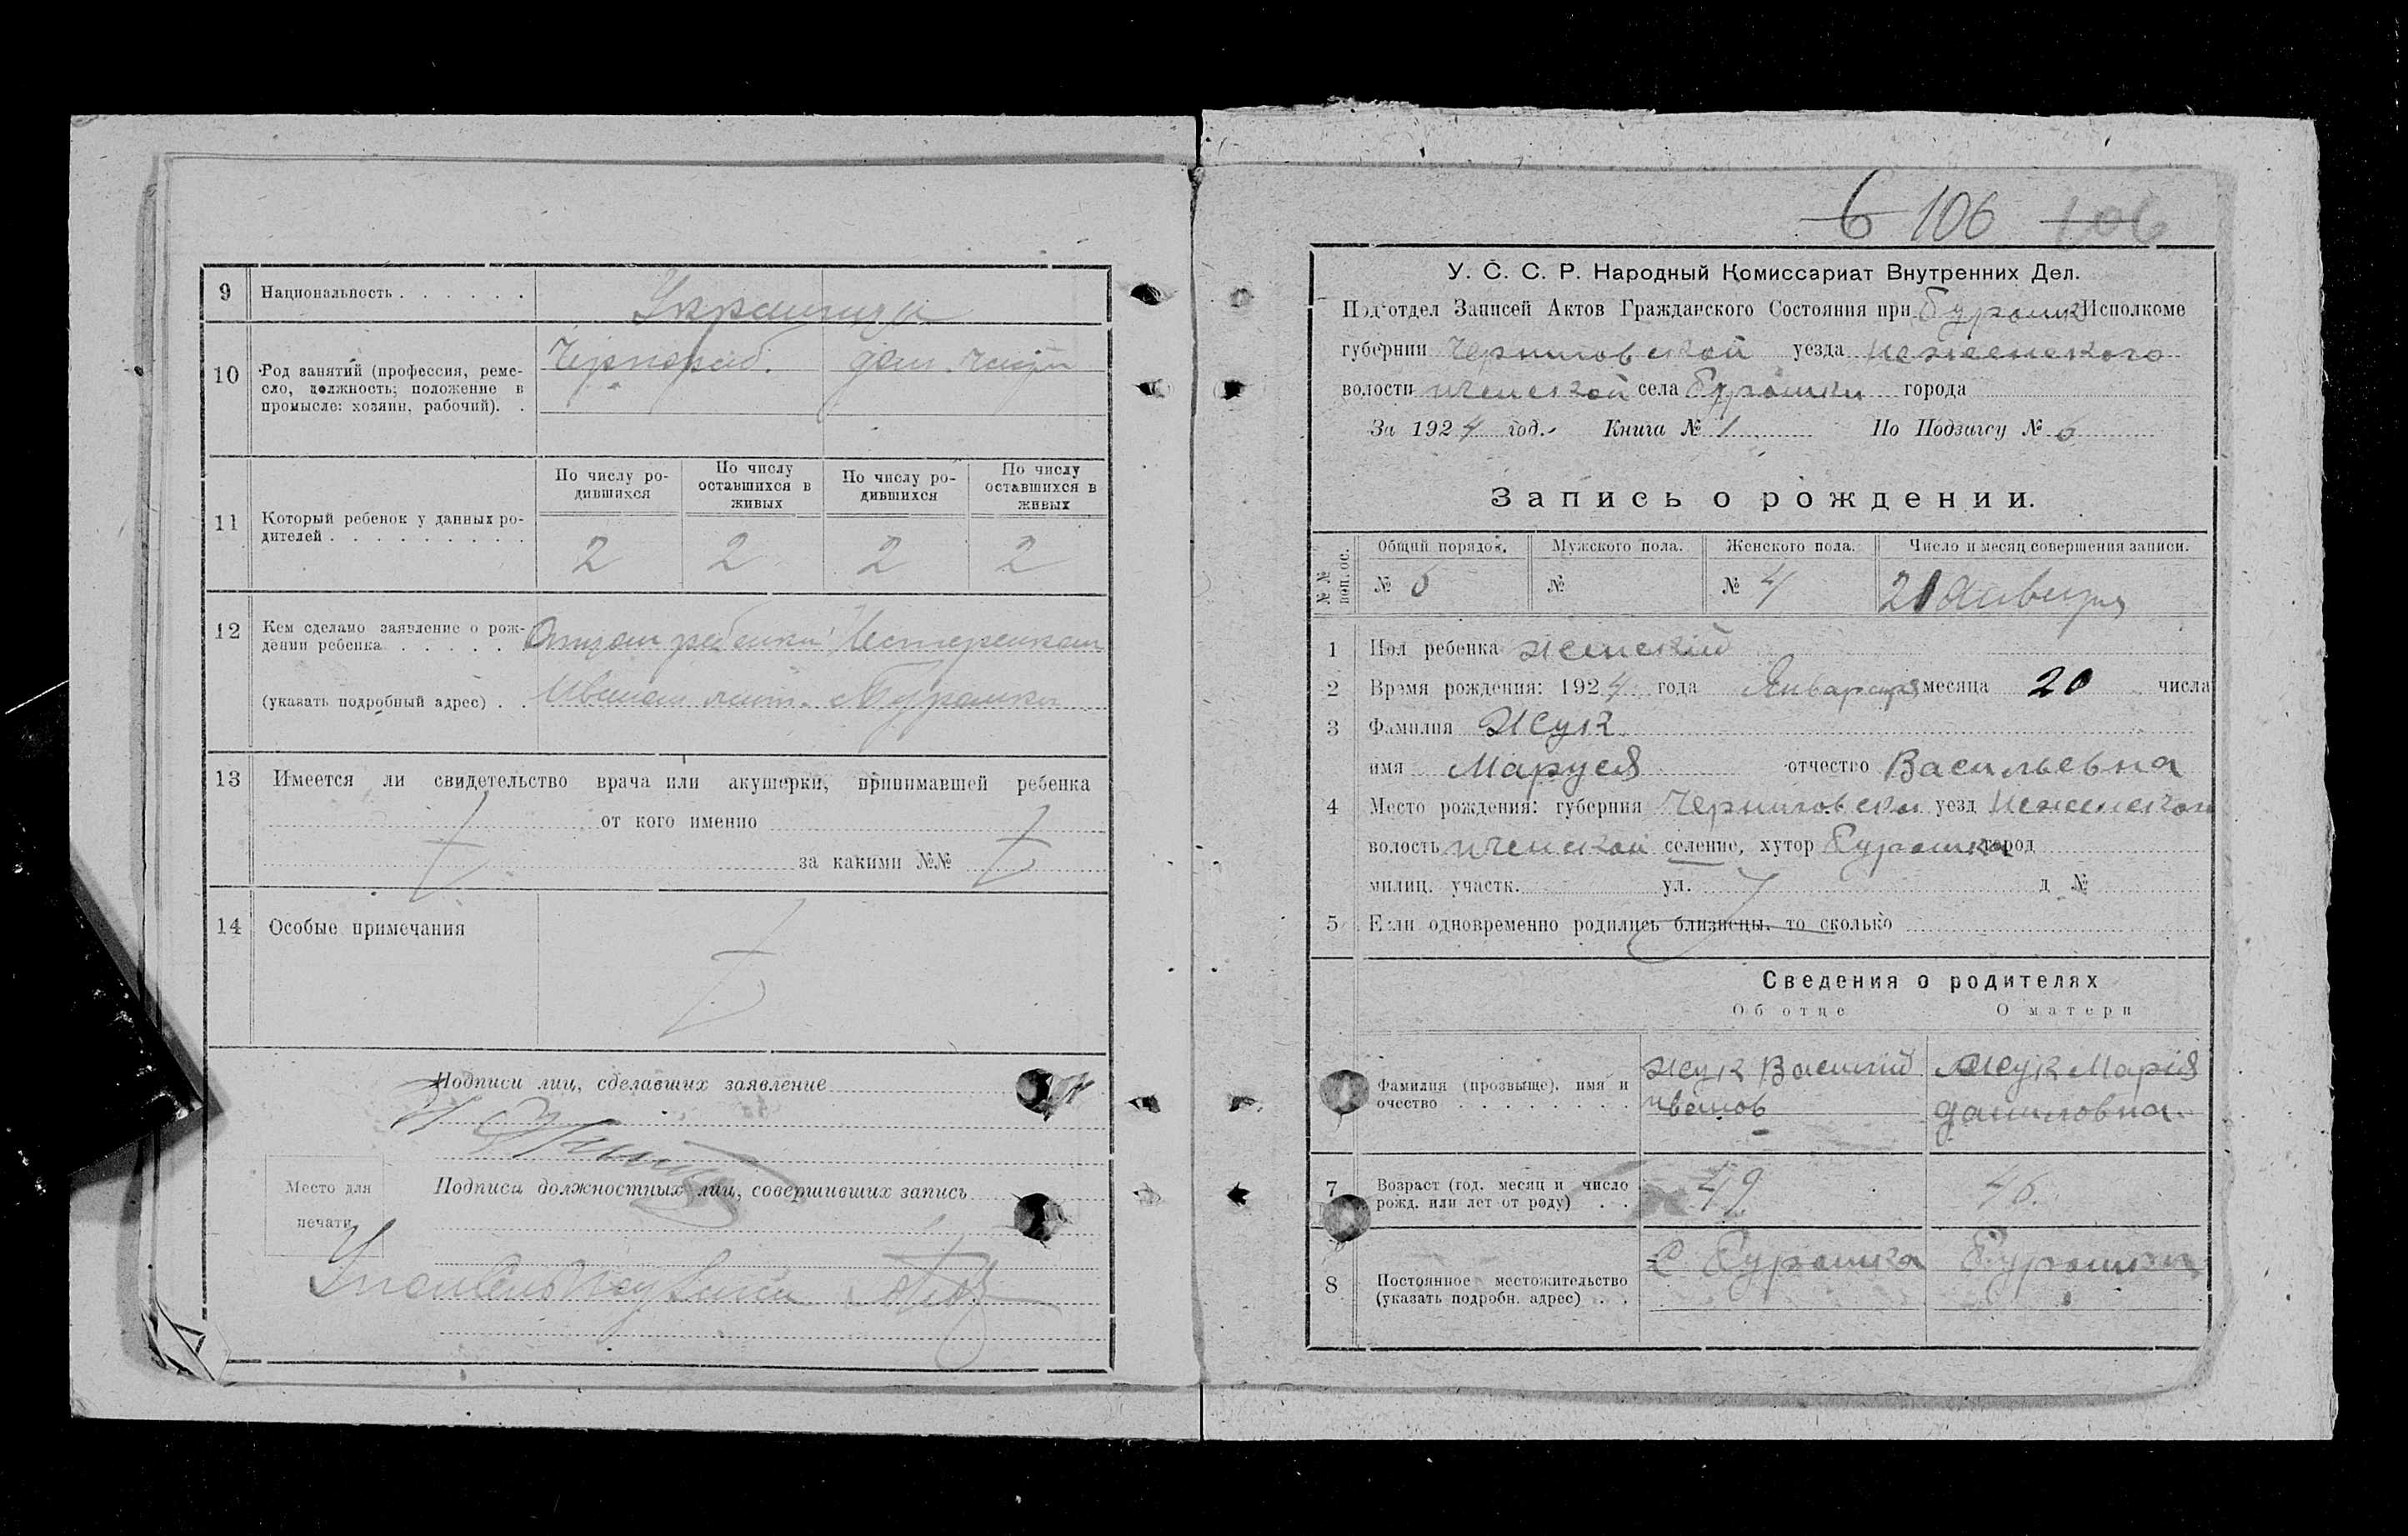 9 Национальность . . . . . . Украинцы
10 Род занятий (профессия, реме-
сло, должность; положение в
промысле: хозяин, рабочий). .
Чернораб. дом.
11 Который ребенок у данных ро-
дителей . . . . . . . . . .
По числу ро-
дившихся
По числу
оставшихся в
живых
По числу ро-
дившихся
По числу
оставшихся в
живых
2 2 2 2
12 Кем сделано заявление о рож-
дении ребенка . . . . . Отцом ребенка Нестеренком
(указать подробный адрес) . . Иваном с Бурашки
13 Имеется ли свидетельство врача или акушерки, принимавшей ребенка
от кого именно
за какими №№
14 Особые примечания
Подписи лиц, сделавших заявление
Место для
печати
Подписи должностных лиц, совершивших запись
6 106 106
У. С. С. Р. Народный Комиссариат Внутренних Дел.
Под'отдел Записей Актов Гражданского Состояния при Бурашк Исполкоме
губернии Черниговской уезда Неженского
волости Иченской села Бурашки города
За 1924 год. Книга № 1 По Подзагсу № 6
Запись о рождении.
№ №
поп. ос.
Общий порядок. Мужского пола. Женского пола. Число и месяц совершения записи.
№ 6 № № 4 21 Января
1 Пол ребенка женский
2 Время рождения: 1924 года Января месяца 20 числа
3 Фамилия Жук
имя Маруся отчество Васильевна
4 Место рождения: губерния Черниговской уезд Неженской
волость Иченской селение, хутор Бурашка город
милиц. участк. ул. д №
5 Если одновременно родились близнецы, то сколько
Сведения о родителях
Об отце О матери
Фамилия (прозвыще), имя и
очество . . . . . . . .
Жук Василий
Иванов
Жук Мария
Даниловна
7 Возраст (год, месяц и число
рожд. или лет от роду) . .
49 46.
8 Постоянное местожительство
(указать подробн. адрес) . .
С Бурашка Бурашки